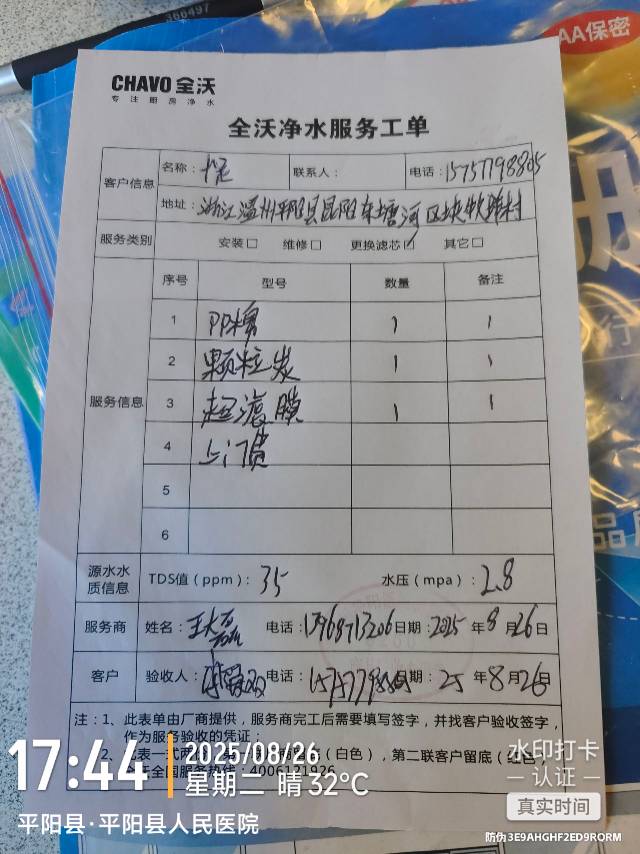 366497
AA保密
CHAVO 全沃
专注厨房净水
全沃净水服务工单
客户信息 名称： 联系人： 电话：15757798885
地址：浙江温州平阳县昆阳东塘河区块软牌村
服务类别 安装□ 维修□ 更换滤芯□ 其它□
服务信息 序号 型号 数量 备注
1 PP棉 1 1
2 颗粒炭 1 1
3 超滤膜 1 1
4 上门费
5
6
源水水质信息 TDS值（ppm）：35 水压（mpa）：2.8
服务商 姓名：王大磊 电话：13968713206 日期：2025年8月26日
客户 验收人： 电话： 日期：25年8月26日
注：1、此表单由厂商提供，服务商完工后需要填写签字，并找客户验收签字，
作为服务验收的凭证；
2、此表一式两 （白色），第二联客户留底（红色
全国服务热线：4006121926
17:44
2025/08/26
星期二 晴 32°C
平阳县·平阳县人民医院
水印打卡
认证
真实时间
防伪3E9AHGHF2ED9RORM
册
行
品质